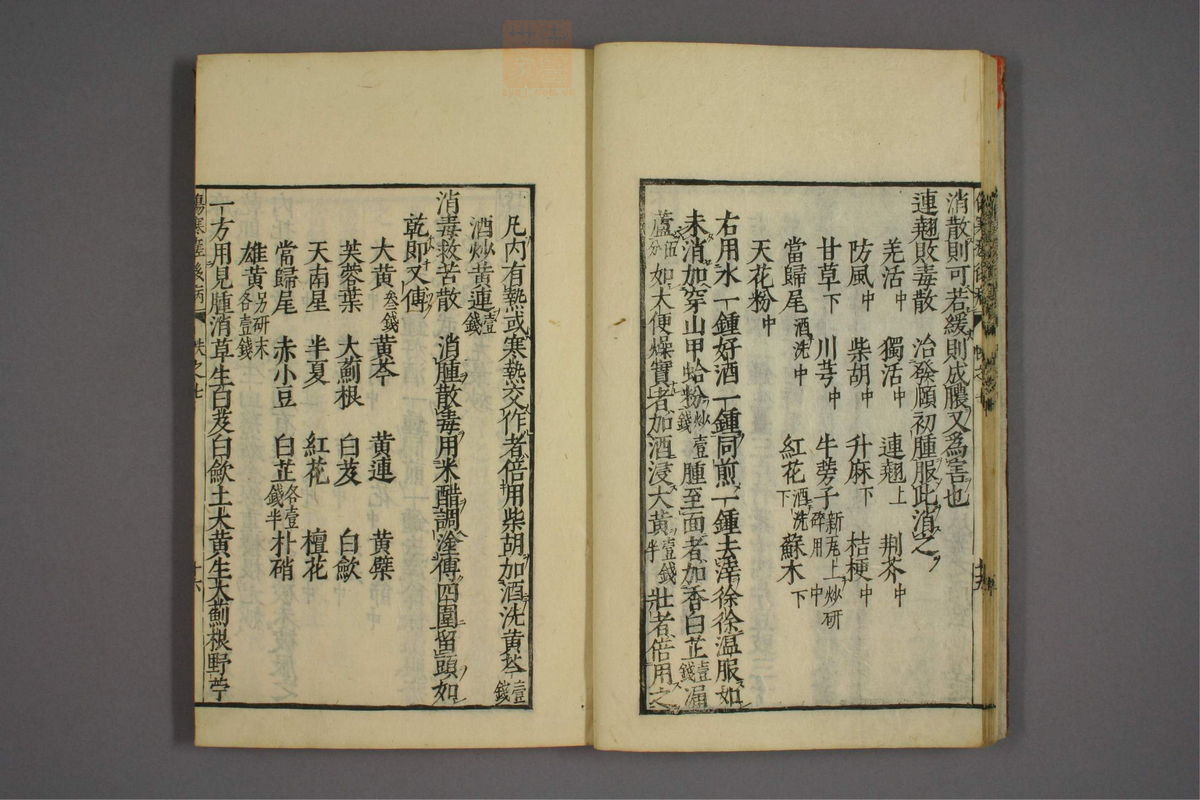 消散則可若緩則成膿又爲害也
連翹敗毒散 治發頤初腫服此消之
羌活中 獨活中 連翹上 荆芥中
防風中 柴胡中 升麻下 桔梗中
甘草下 川芎中 牛蒡子新瓦上炒研碎用中
當歸尾酒洗中 紅花酒洗下 蘇木下
天花粉中
右用水一鍾好酒一鍾同煎一鍾去滓徐徐温服如
未消加穿山甲蛤粉炒壹錢腫至面者加香白芷壹錢漏
蘆伍分如大便燥實者加酒浸大黃壹錢半壯者倍用之
凡內有熱或寒熱交作者倍用柴胡加酒洗黃芩壹錢
酒炒黃連壹錢
消毒救苦散 消腫散毒用米醋調塗傅四圍留頭如
乾即又傅
大黃叁錢 黃芩 黃連 黃檗
芙蓉葉 大薊根 白芨 白歛
天南星 半夏 紅花 檀花
當歸尾 赤小豆 白芷各壹錢半 朴硝
雄黃另研末各壹錢
一方用見腫消草生白芨白歛土大黃生大薊根野苧
傷寒瘥後病 帙之七 十六